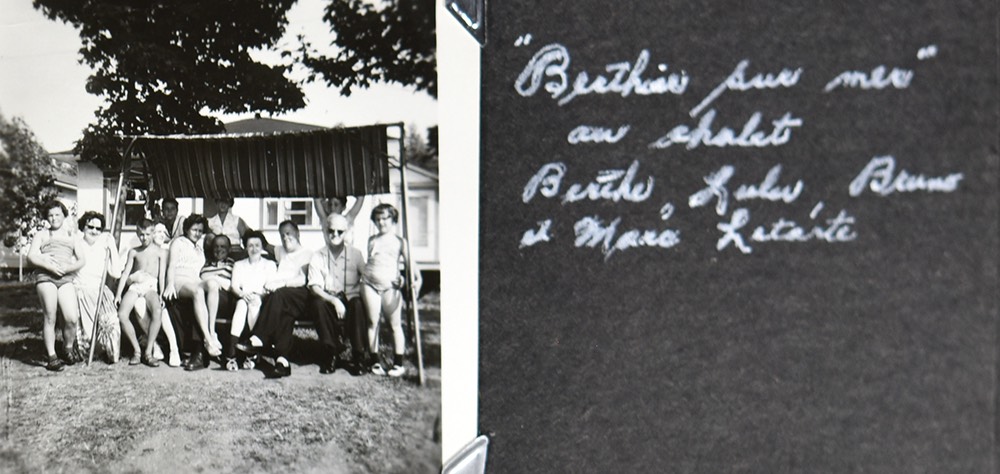 "Berthier sur mer"
au chalet
Berthe, Lulu, Bruno
et Marc Letarte